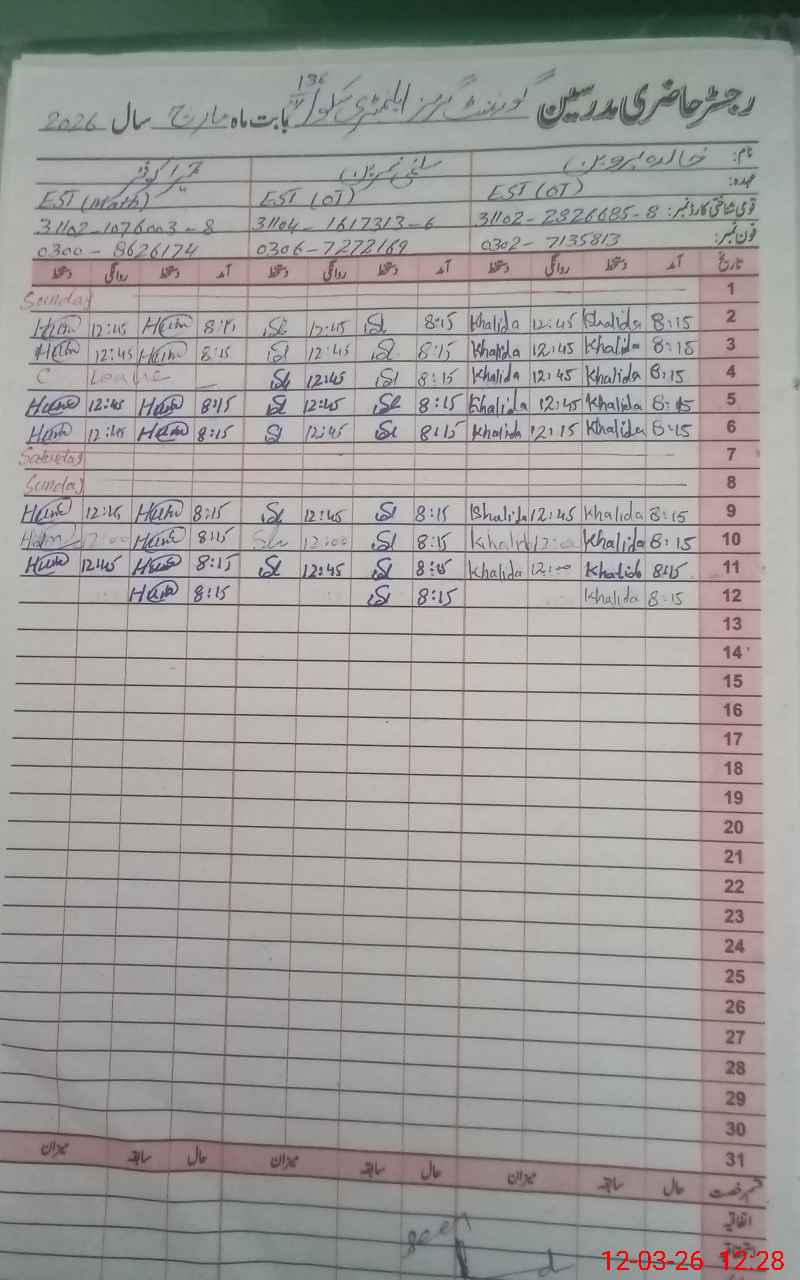 رجسٹر حاضری مدرسین گورنمنٹ گرلز ایلیمنٹری سکول 136 بابت ماہ مارچ سال 2026
نام: خالدہ پروین سلمیٰ نسرین حمیرا کوثر
عہدہ: EST (OT) EST (OT) EST (Math)
قومی شناختی کارڈ نمبر: 31102-2826685-8 31104-1617313-6 31102-1076003-8
فون نمبر: 0302-7135813 0306-7272169 0300-8626174
تاریخ آمد دستخط روانگی دستخط آمد دستخط روانگی دستخط آمد دستخط روانگی دستخط
Sunday 1
Hum 12:45 Hum 8:15 Sl 12:45 Sl 8:15 Khalida 12:45 Khalida 8:15 2
Hum 12:45 Hum 8:15 Sl 12:45 Sl 8:15 Khalida 12:45 Khalida 8:15 3
C Leave Sl 12:45 Sl 8:15 Khalida 12:45 Khalida 8:15 4
Hum 12:45 Hum 8:15 Sl 12:45 Sl 8:15 Khalida 12:45 Khalida 8:15 5
Hum 12:45 Hum 8:15 Sl 12:45 Sl 8:15 Khalida 12:15 Khalida 8:15 6
Saturday 7
Sunday 8
Hum 12:45 Hum 8:15 Sl 12:45 Sl 8:15 Khalida 12:45 Khalida 8:15 9
Hum 12:00 Hum 8:15 Sl 12:00 Sl 8:15 Khalida 12:00 Khalida 8:15 10
Hum 12:45 Hum 8:15 Sl 12:45 Sl 8:15 Khalida 12:00 Khalida 8:15 11
Hum 8:15 Sl 8:15 Khalida 8:15 12
13
14
15
16
17
18
19
20
21
22
23
24
25
26
27
28
29
30
31
قسم رخصت حال سابقہ میزان حال سابقہ میزان حال سابقہ میزان
اتفاقیہ
seen
12-03-26 12:28